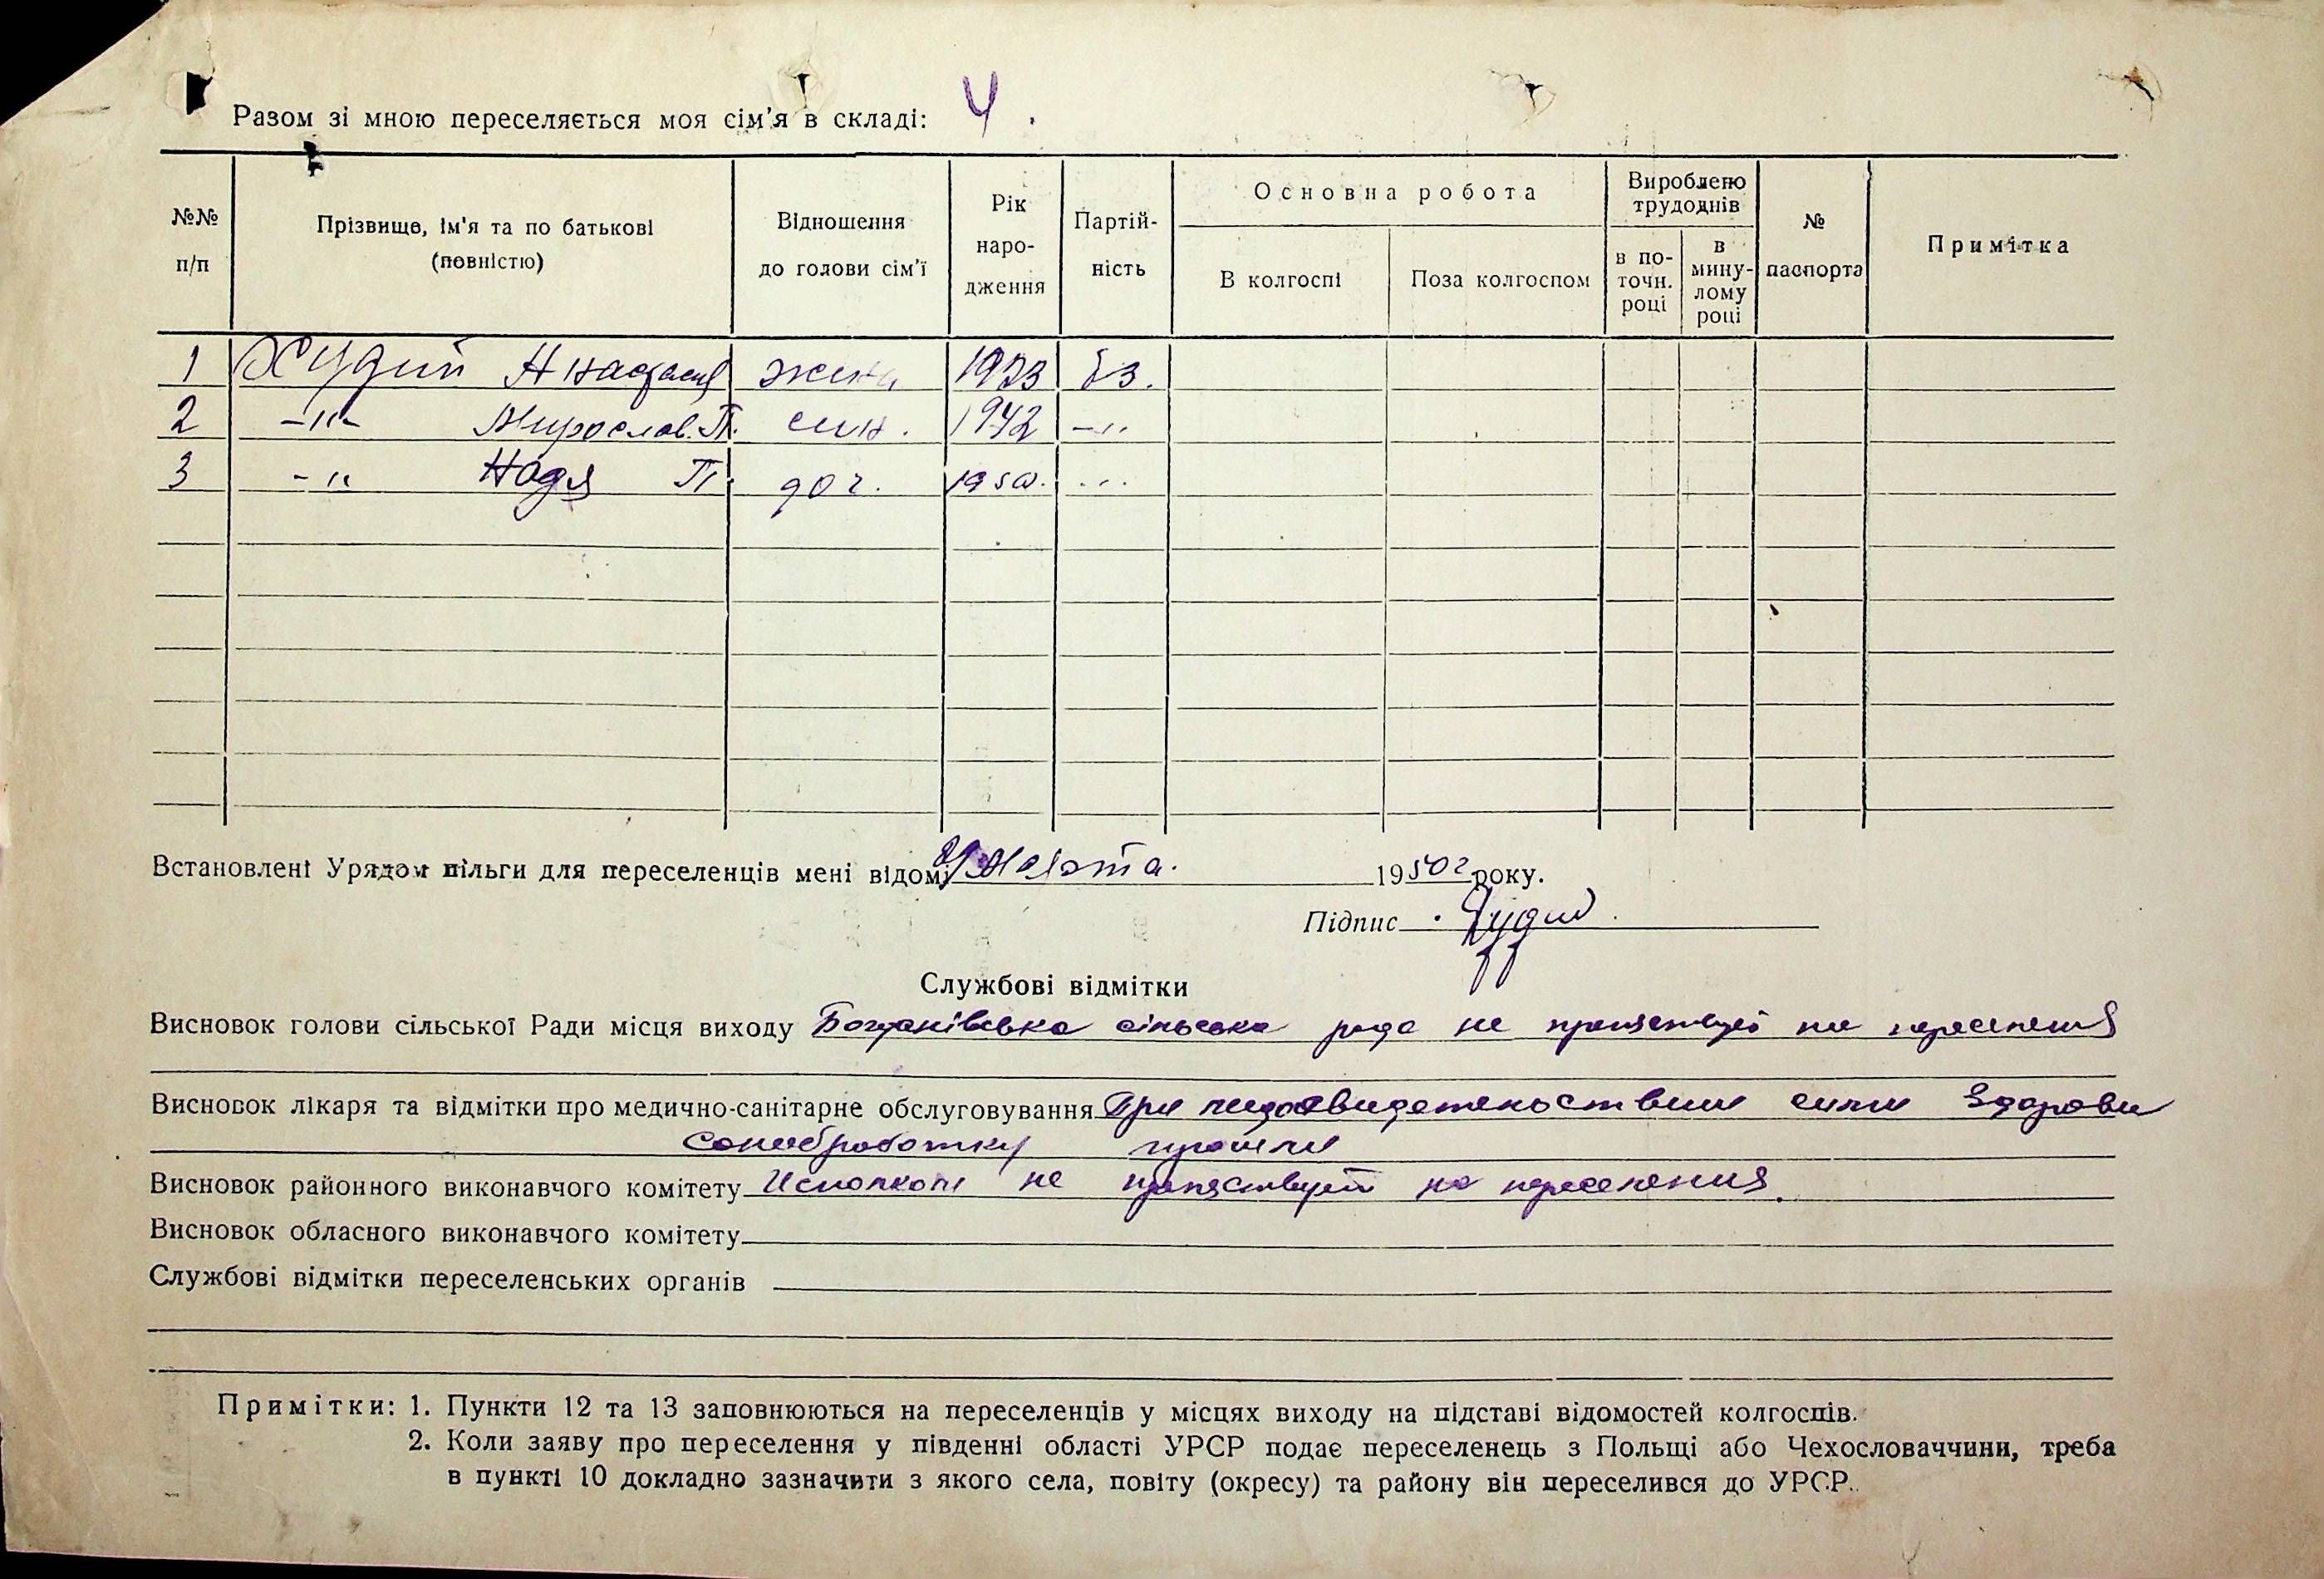 Разом зі мною переселяється моя сім'я в складі: 4.
№№ п/п
Прізвище, ім'я та по батькові (повністю)
Відношення до голови сім'ї
Рік народження
Партійність
Основна робота
В колгоспі
Поза колгоспом
Вироблено трудоднів
в поточн. році
в минулому році
№ паспорта
Примітка
1 Худий Анастасия жена 1923 бз.
2 -"- Мирослав П. син. 1942 -"
3 -" Надя П. доч. 1950. ...
Встановлені Урядом пільги для переселенців мені відомі Марта. 1950г року.
Підпис Худий
Службові відмітки
Висновок голови сільської Ради місця виходу Богданівська сільська рада не на переселения
Висновок лікаря та відмітки про медично-санітарне обслуговування При здорови
санобработку прошли
Висновок районного виконавчого комітету Исполком не препяствует на переселения.
Висновок обласного виконавчого комітету
Службові відмітки переселенських органів
Примітки: 1. Пункти 12 та 13 заповнюються на переселенців у місцях виходу на підставі відомостей колгоспів.
2. Коли заяву про переселення у південні області УРСР подає переселенець з Польщі або Чехословаччини, треба
в пункті 10 докладно зазначити з якого села, повіту (окресу) та району він переселився до УРСР.